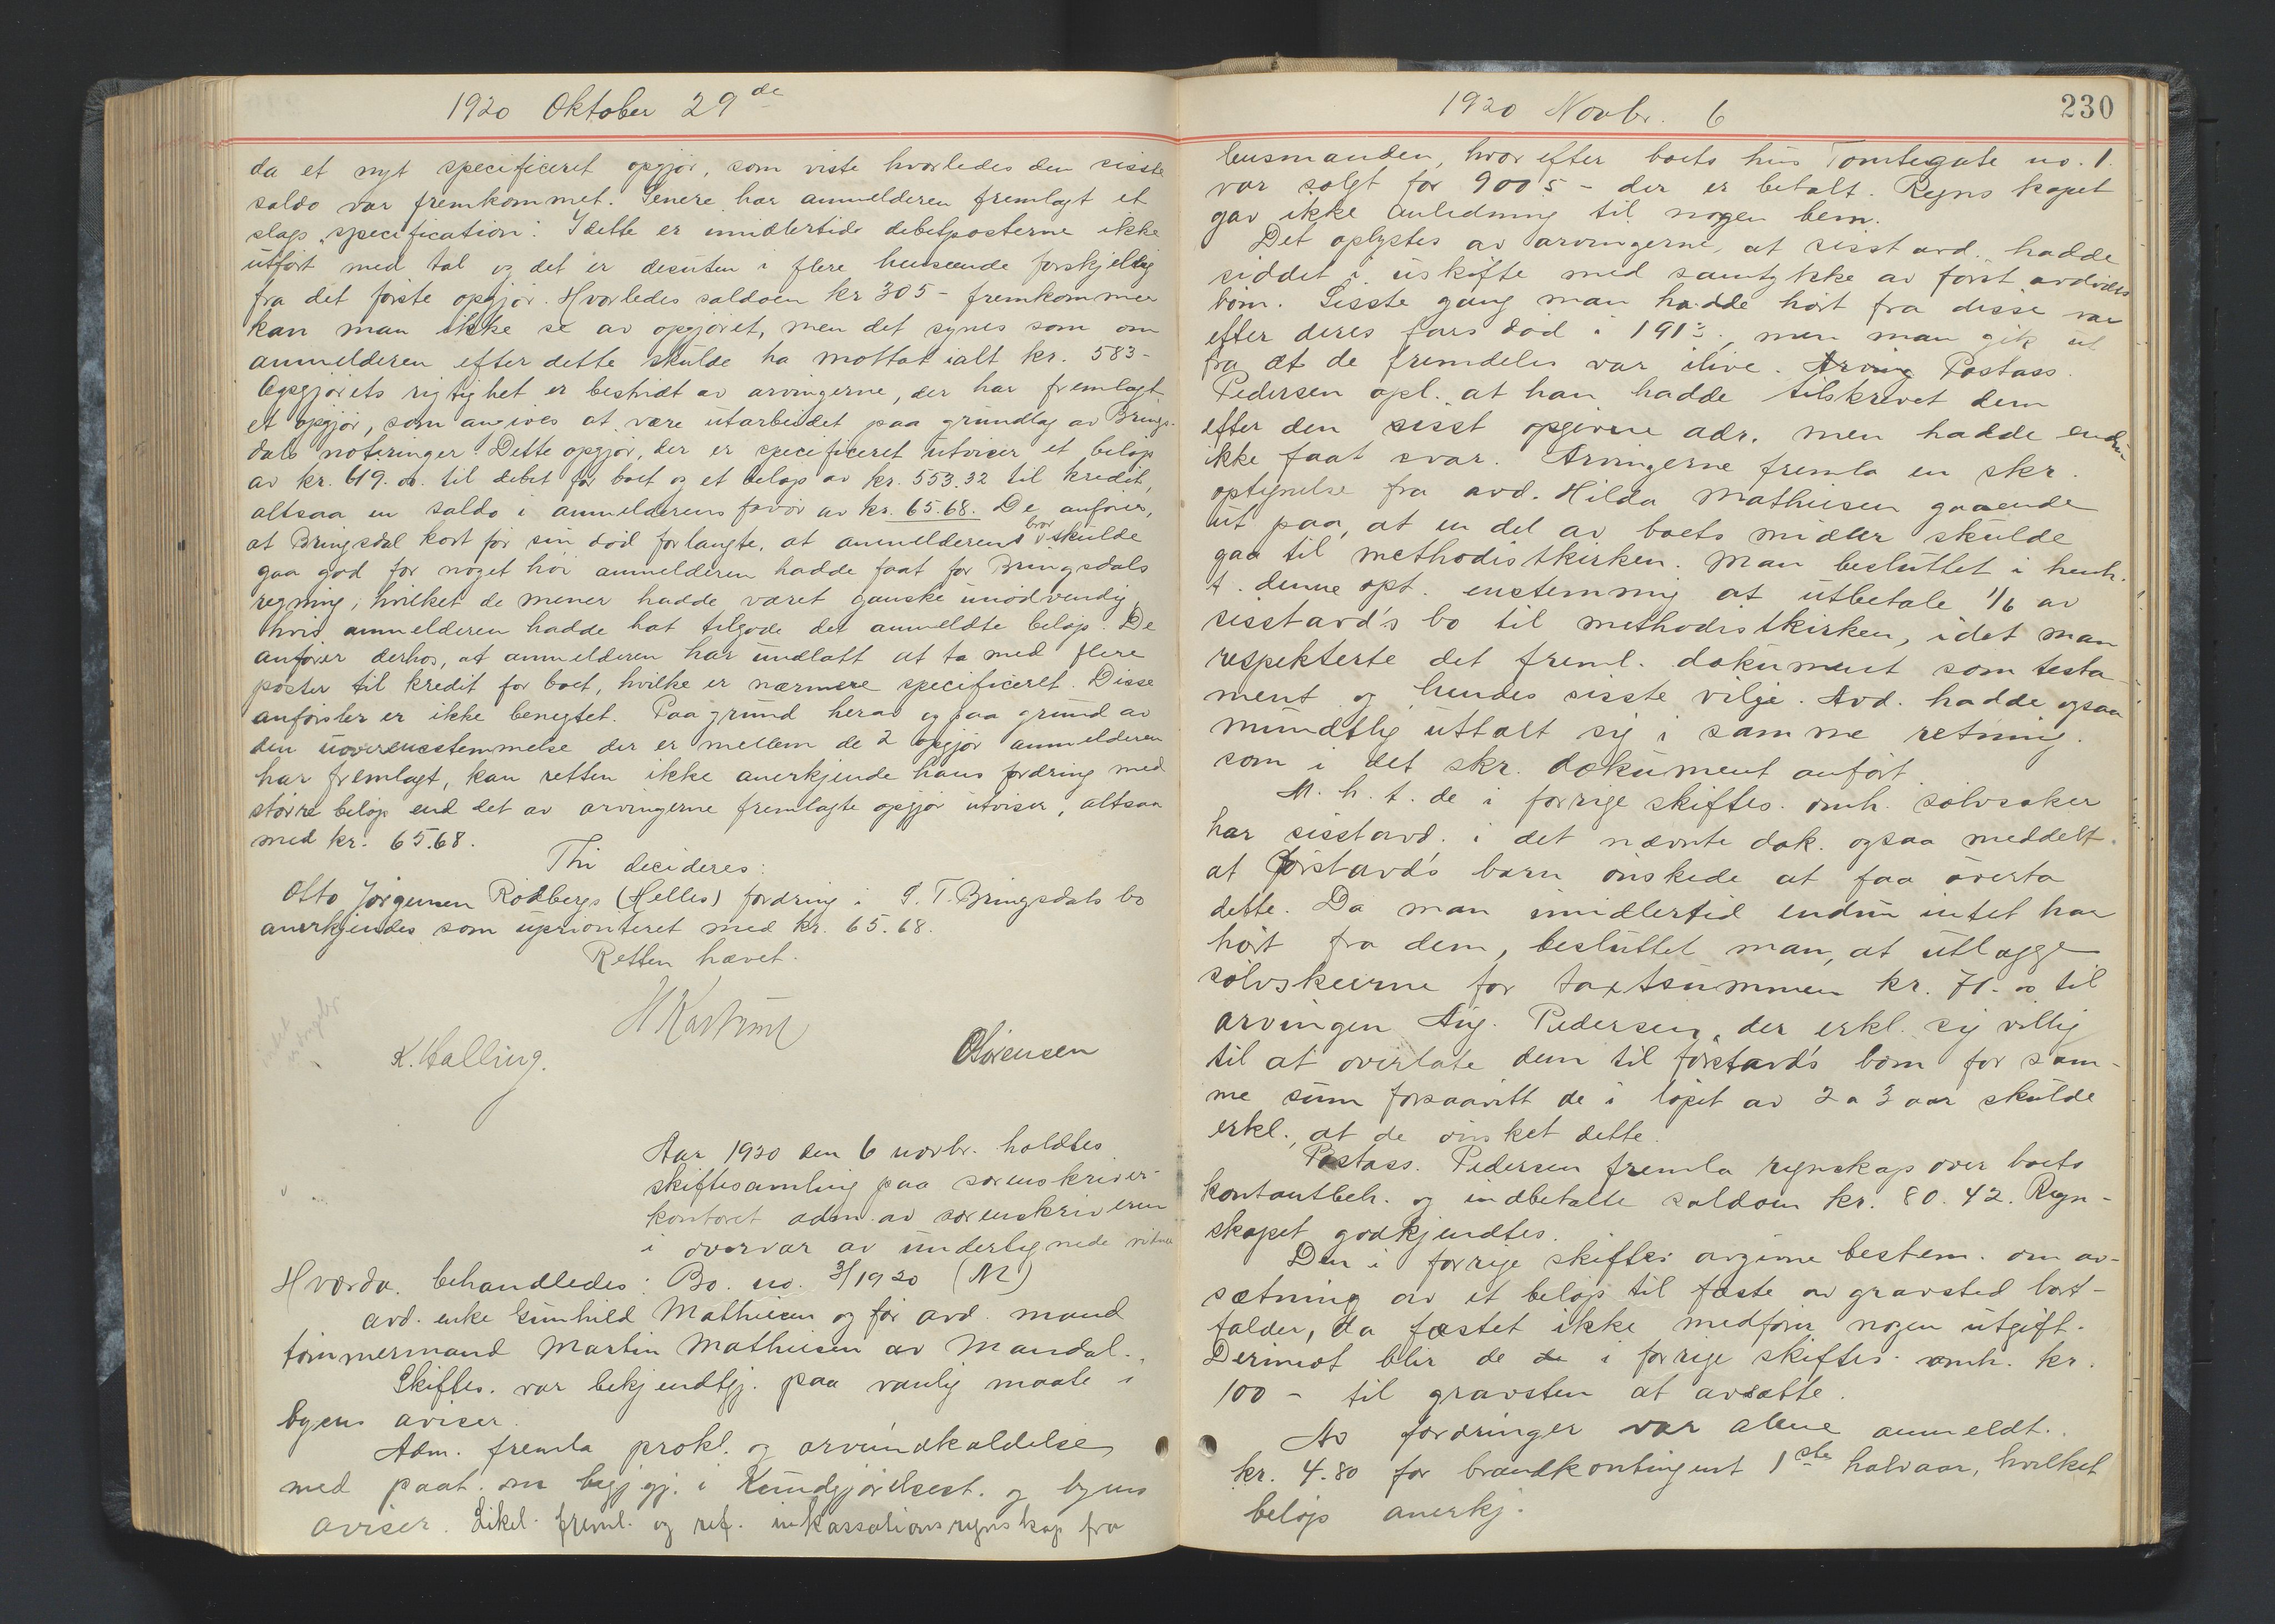 1920 Oktober 29de
da et nyt specificeret opgjør, som viste hvorledes den siste
saldo var fremkommet. Senere har anmelderen fremlagt et
slags "specification". I dette er imidlertid debetposterne ikke
utført med tal og det er desuten i flere henseende forskjellig
fra det første opgjør. Hvorledes saldoen kr 305- fremkommer
kan man ikke se av opgjøret, men det synes som om
anmelderen efter dette skulde ha mottat ialt kr. 583-
Opgjørets rigtighet er bestridt av arvingerne, der har fremlagt
et opgjør, som angives at være utarbeidet paa grundlag av Brings-
dals noteringer. Dette opgjør, der er specificeret utviser et beløp
av kr. 619.00. til debet for boet og et beløp av kr. 553.32 til kredit,
altsaa en saldo i anmelderens favør av kr. 65.68. De anfører,
at Bringsdal kort før sin død forlangte, at anmelderens bror skulde
gaa god for noget høi anmelderen hadde faat for Bringsdals
regning, hvilket de mener hadde været ganske unødvendig,
hvis anmelderen hadde hat tilgode det anmeldte beløp. De
anfører derhos, at anmelderen har undlatt at ta med flere
poster til kredit for boet, hvilke er nærmere specificeret. Disse
anførsler er ikke benegtet. Paa grund herav og paa grund av
den uoverensstemmelse der er mellem de 2 opgjør anmelderen
har fremlagt, kan retten ikke anerkjende hans fordring med
større beløp end det av arvingerne fremlagte opgjør utviser, altsaa
med kr. 65.68.
Thi decideres:
Otto Jørgensen Rødbergs (Helles) fordring i S. T. Bringsdals bo
anerkjendes som uprioriteret med kr. 65.68.
Retten hævet.
K. Halling.
OSørensen
Aar 1920 den 6 novbr. holdtes
skiftesamling paa sorenskriver-
kontoret adm. av sorenskriveren
i overvær av undertegnede vitner
Hvorda. behandledes: Bo. no. 3/1920 (M)
avd. enke Gunhild Mathiesen og før avd. mand
tømmermand Martin Mathiesen av Mandal.
Skiftes. var bekjendtgj. paa vanlig maate i
byens aviser.
Adm. fremla prokl. og arveindkaldelse
med paat. om bekjgj. i Kundgjørelsest. og byens
aviser. Likel. freml. og ref. inkassationsregnskap fra
1920 Novbr. 6
230
lensmanden, hvorefter boets hus Tomtegate no. 1.
var solgt for 9005- der er betalt. Regnskapet
gav ikke anledning til nogen bem.
Det oplystes av arvingerne at sisst avd. hadde
siddet i uskifte med samtykke av først avdødes
børn. Sisste gang man hadde hørt fra disse var
efter deres fars død i 1913, men man gik ut
fra at de fremdeles var ilive. Arving Postass.
Pedersen opl. at han hadde tilskrevet dem
efter den sisst opgivne adr. men hadde endnu
ikke faat svar. Arvingerne fremla en skr.
optegnelse fra avd. Hilda Mathiesen gaaende
ut paa, at en del av boets midler skulde
gaa til methodistkirken. Man besluttet i henh.
t. denne opt. enstemmig at utbetale 1/6 av
sisstavd's bo til methodistkirken, idet man
respekterte det freml. dokument som testa-
ment og hendes sisste vilje. Avd. hadde ogsaa
mundtlig uttalt sig i samme retning.
som i det skr. dokument anført.
M. h. t. de i forrige skiftes. omh. sølvsaker
har sisstavd. i det nævnte dok. ogsaa meddelt.
at førstavd's barn ønskede at faa overta
dette. Da man imidlertid endnu intet har
hørt fra dem, besluttet man, at utlægge
sølvskeerne for taxtsummen kr. 71.00 til
arvingen Aug. Pedersen, der erkl. sig villig
til at overlate dem til førstavd's børn for sam-
me sum forsaavitt de i løpet av 2 a 3 aar skulde
erkl., at de ønsket dette.
Postass. Pedersen fremla regnskap over boets
kontantbeh. og indbetalte saldoen kr. 80.42. Regn-
skapet godkjendtes.
Den i forrige skiftes. avgivne bestem. om av-
sætning av et beløp til fæste av gravsted bort-
falder, da fæstet ikke medfører nogen utgift.
Derimot blir de de i forrige skiftes. omh. kr.
100- til gravsten at avsætte.
Av fordringer var alene anmeldt.
kr. 4.80 for brandkontingent 1ste halvaar, hvilket
beløp anerkj.